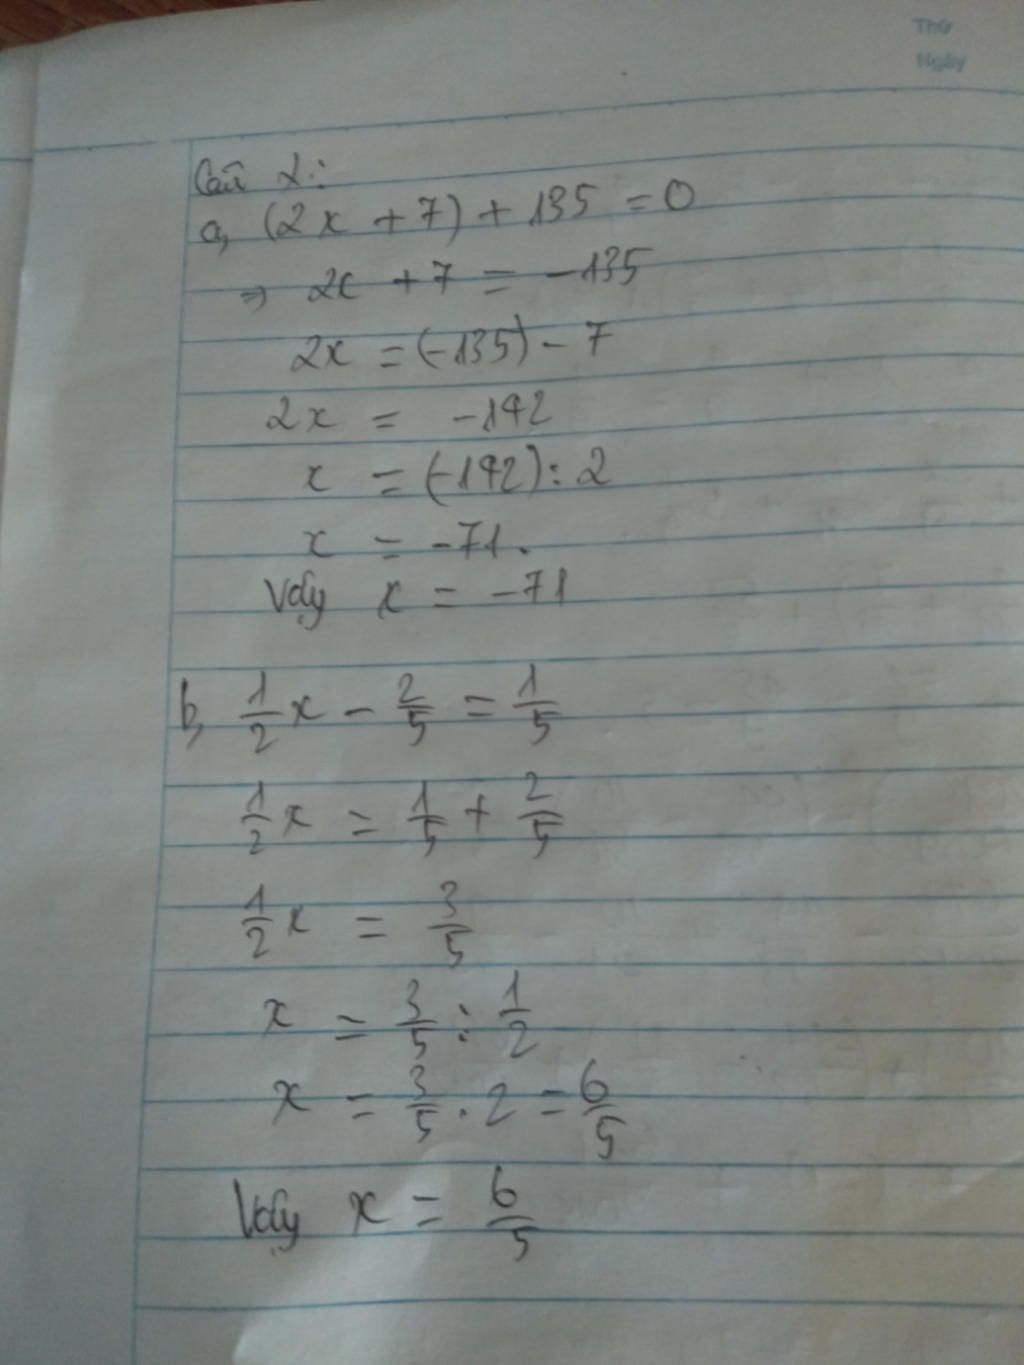 Thứ
Ngày
Câu 2:
a, (2x + 7) + 135 = 0
⇒ 2x + 7 = -135
2x = (-135) - 7
2x = -142
x = (-142) : 2
x = -71.
Vậy x = -71
b, 1/2 x - 2/5 = 1/5
1/2 x = 1/5 + 2/5
1/2 x = 3/5
x = 3/5 : 1/2
x = 3/5 . 2 = 6/5
Vậy x = 6/5